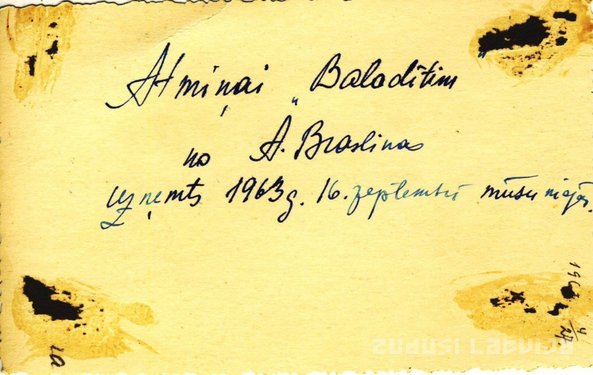 Atmiņai „Baloditim
no A. Braslinas
uzņemts 1963g. 16. zeptembrī mūsu
zudusi Latvija